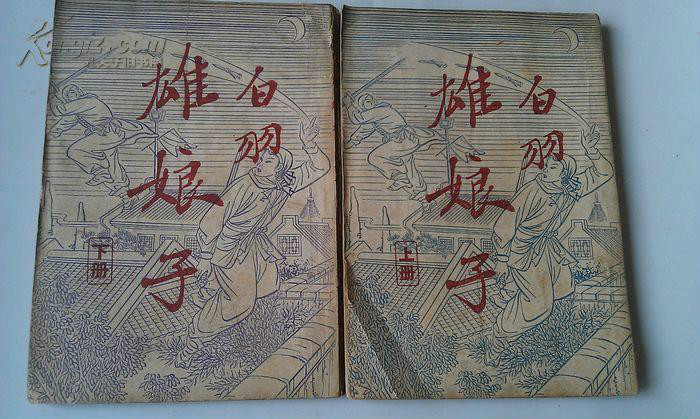 Kongfz.com
孔夫子旧书网
白羽
雄娘子
下册
白羽
雄娘子
上册